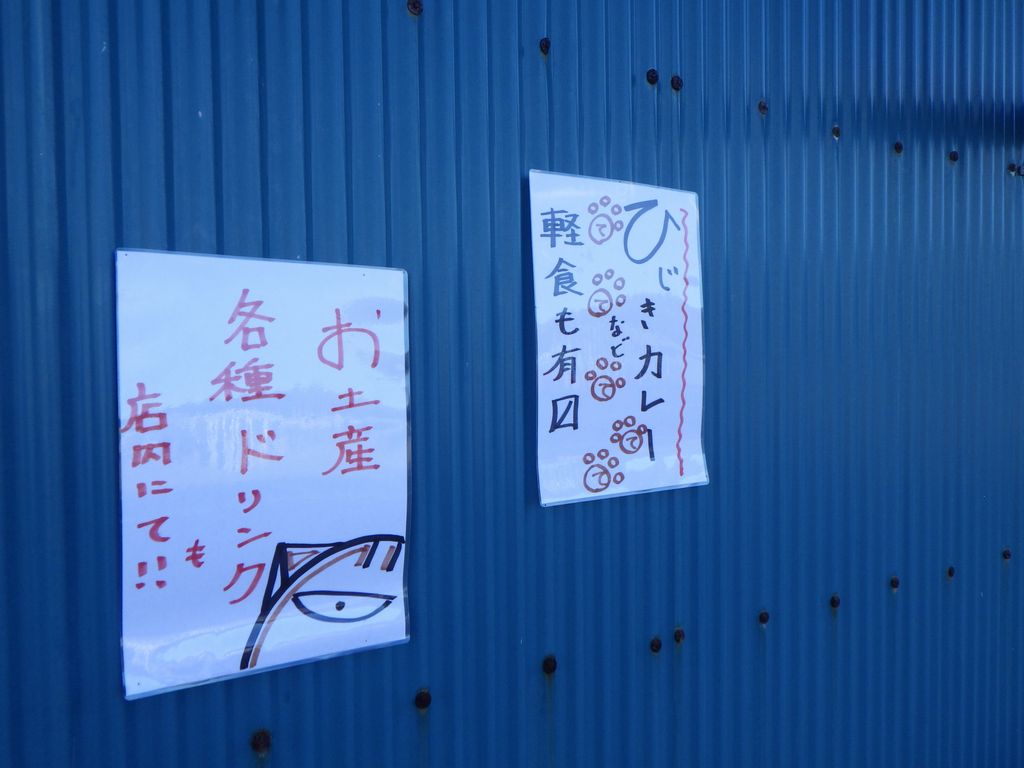 お土産
各種ドリンク
も
店内にて!!
ひじきカレー
など
て
て
て
て
て
軽食も有〼